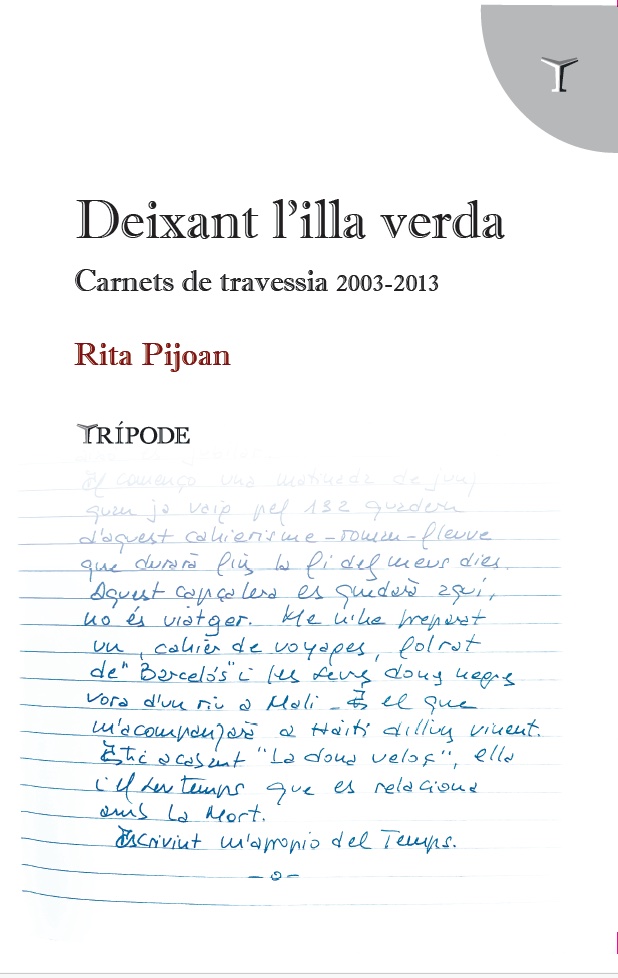 Deixant l'illa verda
Carnets de travessia 2003-2013
Rita Pijoan
TRÍPODE
El començo una matinada de juny
quan ja vaig pel 132 quadern
d'aquest cahierisme-roman-fleuve
que durarà fins la fi dels meus dies.
Aquest capçalera es quedarà aquí,
no és viatger. Me n'he preparat
un, cahier de voyages, folrat
de "Barcelós" i les seves dones negres
vora d'un riu a Mali - És el que
m'acompanyarà a Haití dilluns vinent.
Estic acabant "La dona veloç", ella
i el seu temps que es relaciona
amb la Mort.
Escrivint m'apropio del Temps.